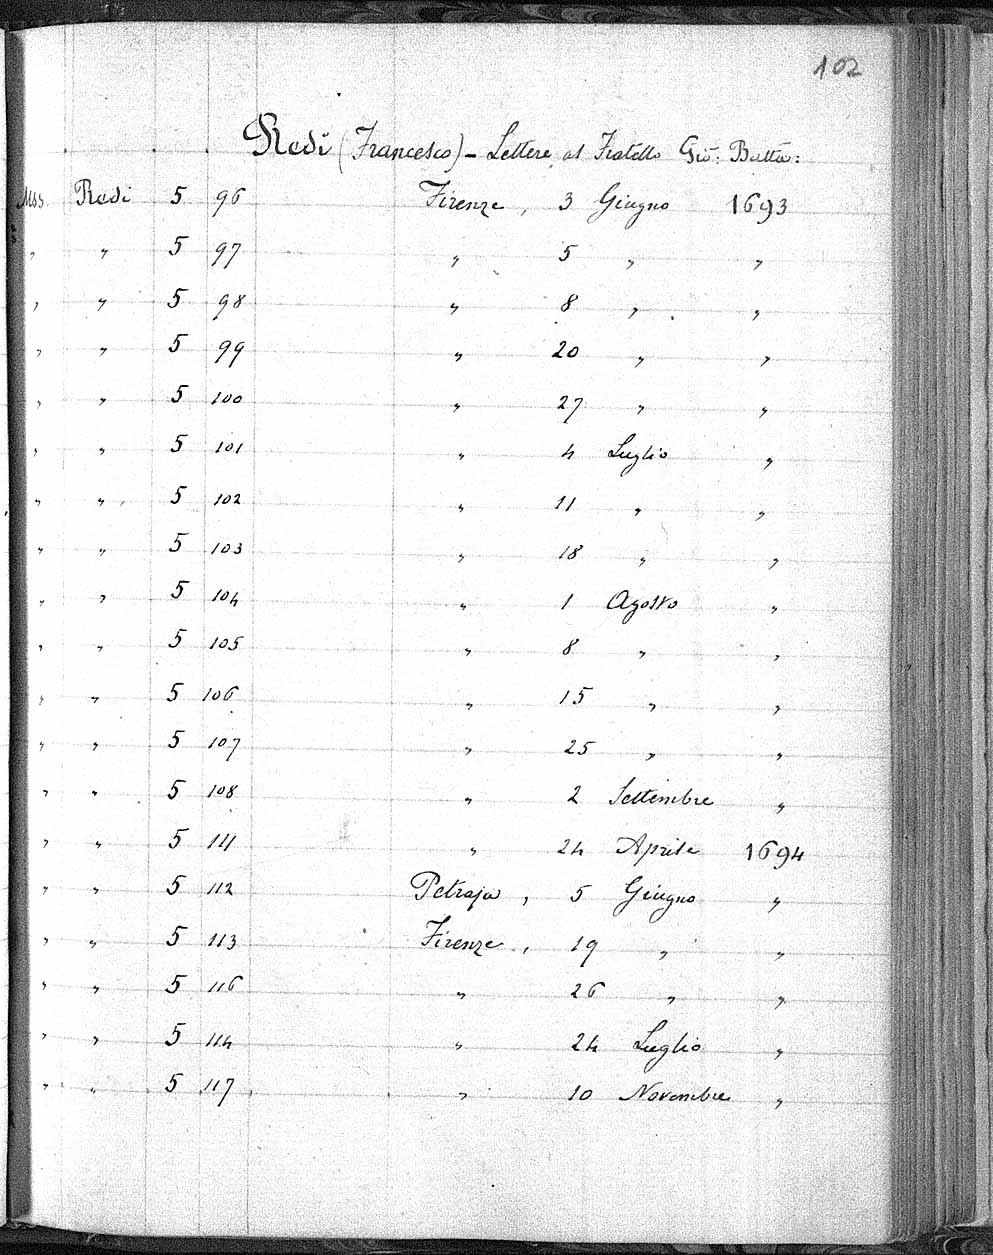 102
Redi (Francesco) – Lettere al Fratello Gio: Batta:
Mss Redi 5 96 Firenze, 3 Giugno 1693
" " 5 97 " 5 " "
" " 5 98 " 8 " "
" " 5 99 " 20 " "
" " 5 100 " 27 " "
" " 5 101 " 4 Luglio "
" " 5 102 " 11 " "
" " 5 103 " 18 " "
" " 5 104 " 1 Agosto "
" " 5 105 " 8 " "
" " 5 106 " 15 " "
" " 5 107 " 25 " "
" " 5 108 " 2 Settembre "
" " 5 111 " 24 Aprile 1694
" " 5 112 Petraja, 5 Giugno "
" " 5 113 Firenze, 19 " "
" " 5 116 " 26 " "
" " 5 114 " 24 Luglio "
" " 5 117 " 10 Novembre "